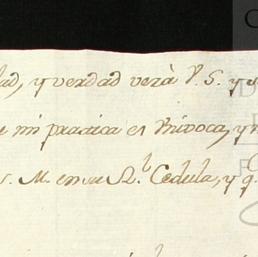 dad, y verdad verà V. S. y
mi practica es Vnivoca, y
S. M. en su R.^l Cedula, y q